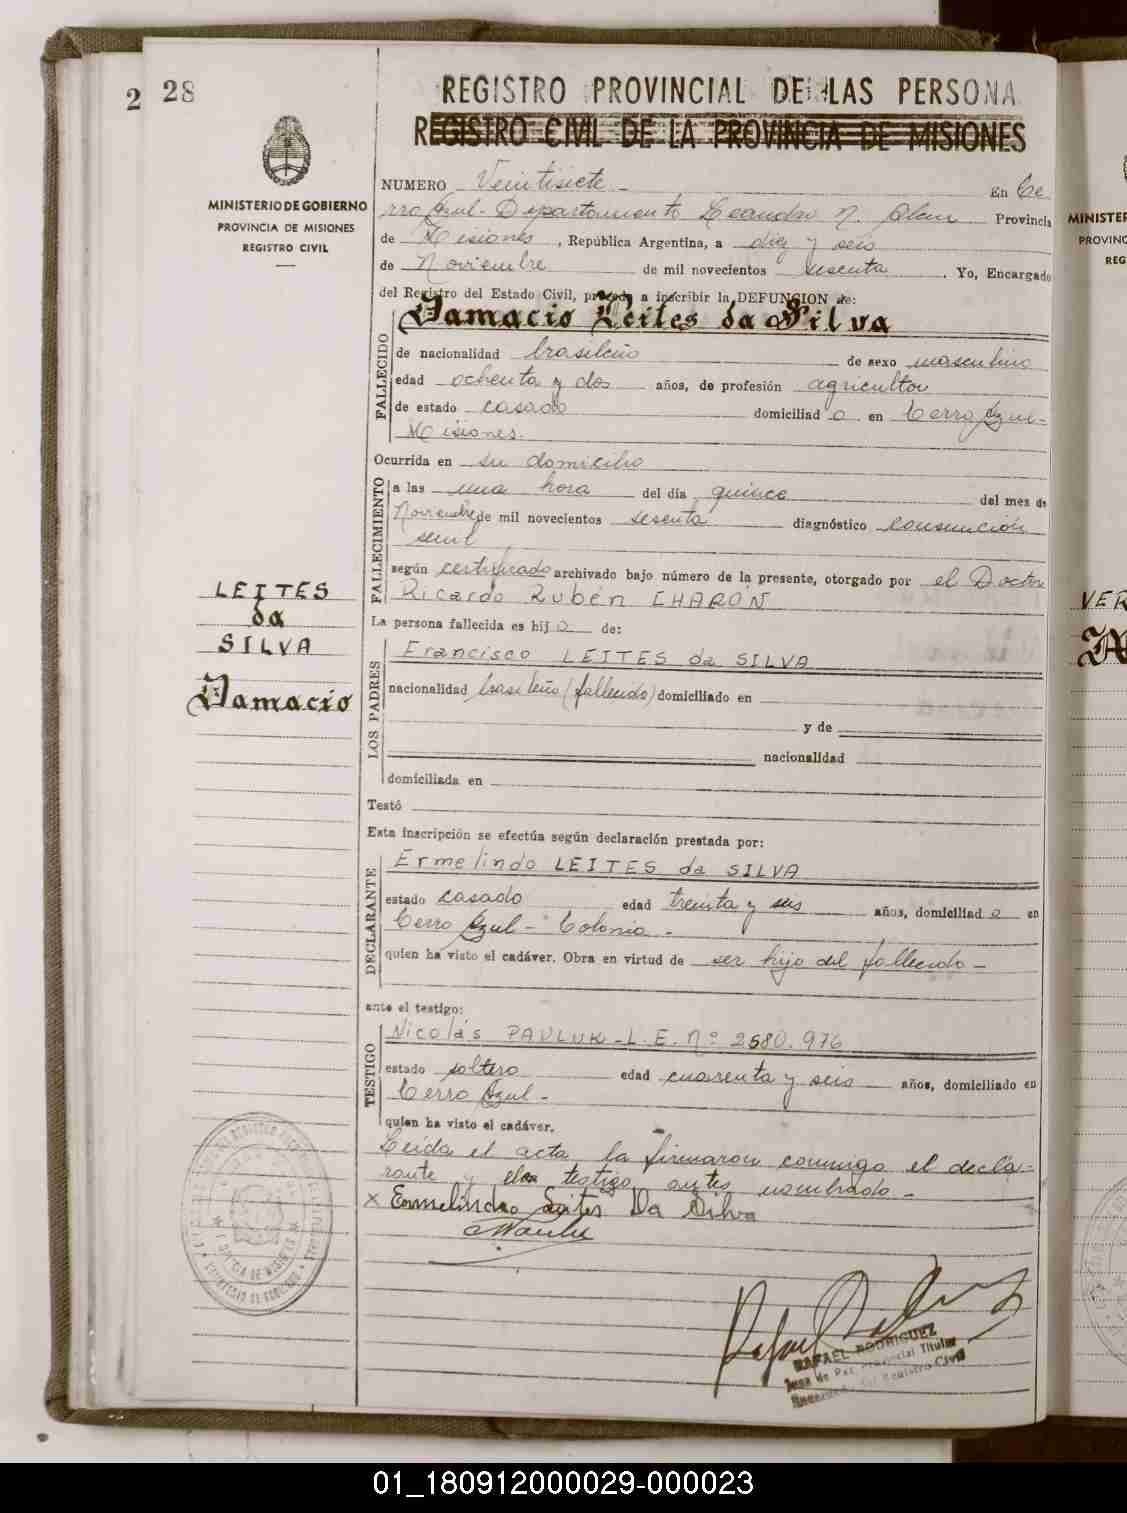 2 28
REGISTRO PROVINCIAL DE LAS PERSONA
REGISTRO CIVIL DE LA PROVINCIA DE MISIONES
MINISTERIO DE GOBIERNO
PROVINCIA DE MISIONES
REGISTRO CIVIL
NUMERO Veintisiete - En Ce
rro Azul - Departamento Leandro N. Alem Provincia
de Misiones, República Argentina, a diez y seis
de Noviembre de mil novecientos sesenta. Yo, Encargado
del Registro del Estado Civil, procedo a inscribir la DEFUNCION de:
Damacio Leites da Silva
FALLECIDO
de nacionalidad brasileño de sexo masculino
edad ochenta y dos años, de profesión agricultor
de estado casado domiciliad o en Cerro Azul-
Misiones.
Ocurrida en su domicilio
FALLECIMIENTO
a las una hora del día quince del mes de
Noviembre de mil novecientos sesenta diagnóstico consunción
senil
según certificado archivado bajo número de la presente, otorgado por el Doctor
Ricardo Rubén CHARÓN
La persona fallecida es hij o de:
LOS PADRES
Francisco LEITES da SILVA
nacionalidad brasileño (fallecido) domiciliado en
y de
nacionalidad
domiciliada en
Testó
Esta inscripción se efectúa según declaración prestada por:
DECLARANTE
Ermelindo LEITES da SILVA
estado casado edad treinta y seis años, domiciliad o en
Cerro Azul - Colonia -
quien ha visto el cadáver. Obra en virtud de ser hijo del fallecido -
ante el testigo:
TESTIGO
Nicolás PAULUK - L. E. Nº 2580.976
estado soltero edad cuarenta y seis años, domiciliado en
Cerro Azul -
quien ha visto el cadáver.
Leída el acta la firmaron conmigo el decla-
rante y el testigo antes nombrado -
x Ermelindo Leites Da Silva
RAFAEL RODRIGUEZ
Juez de Paz Provincial Titular
Encargado del Registro Civil
LEITES
da
SILVA
Damacio
MINISTER
PROVINC
REG
VER
01_180912000029-000023